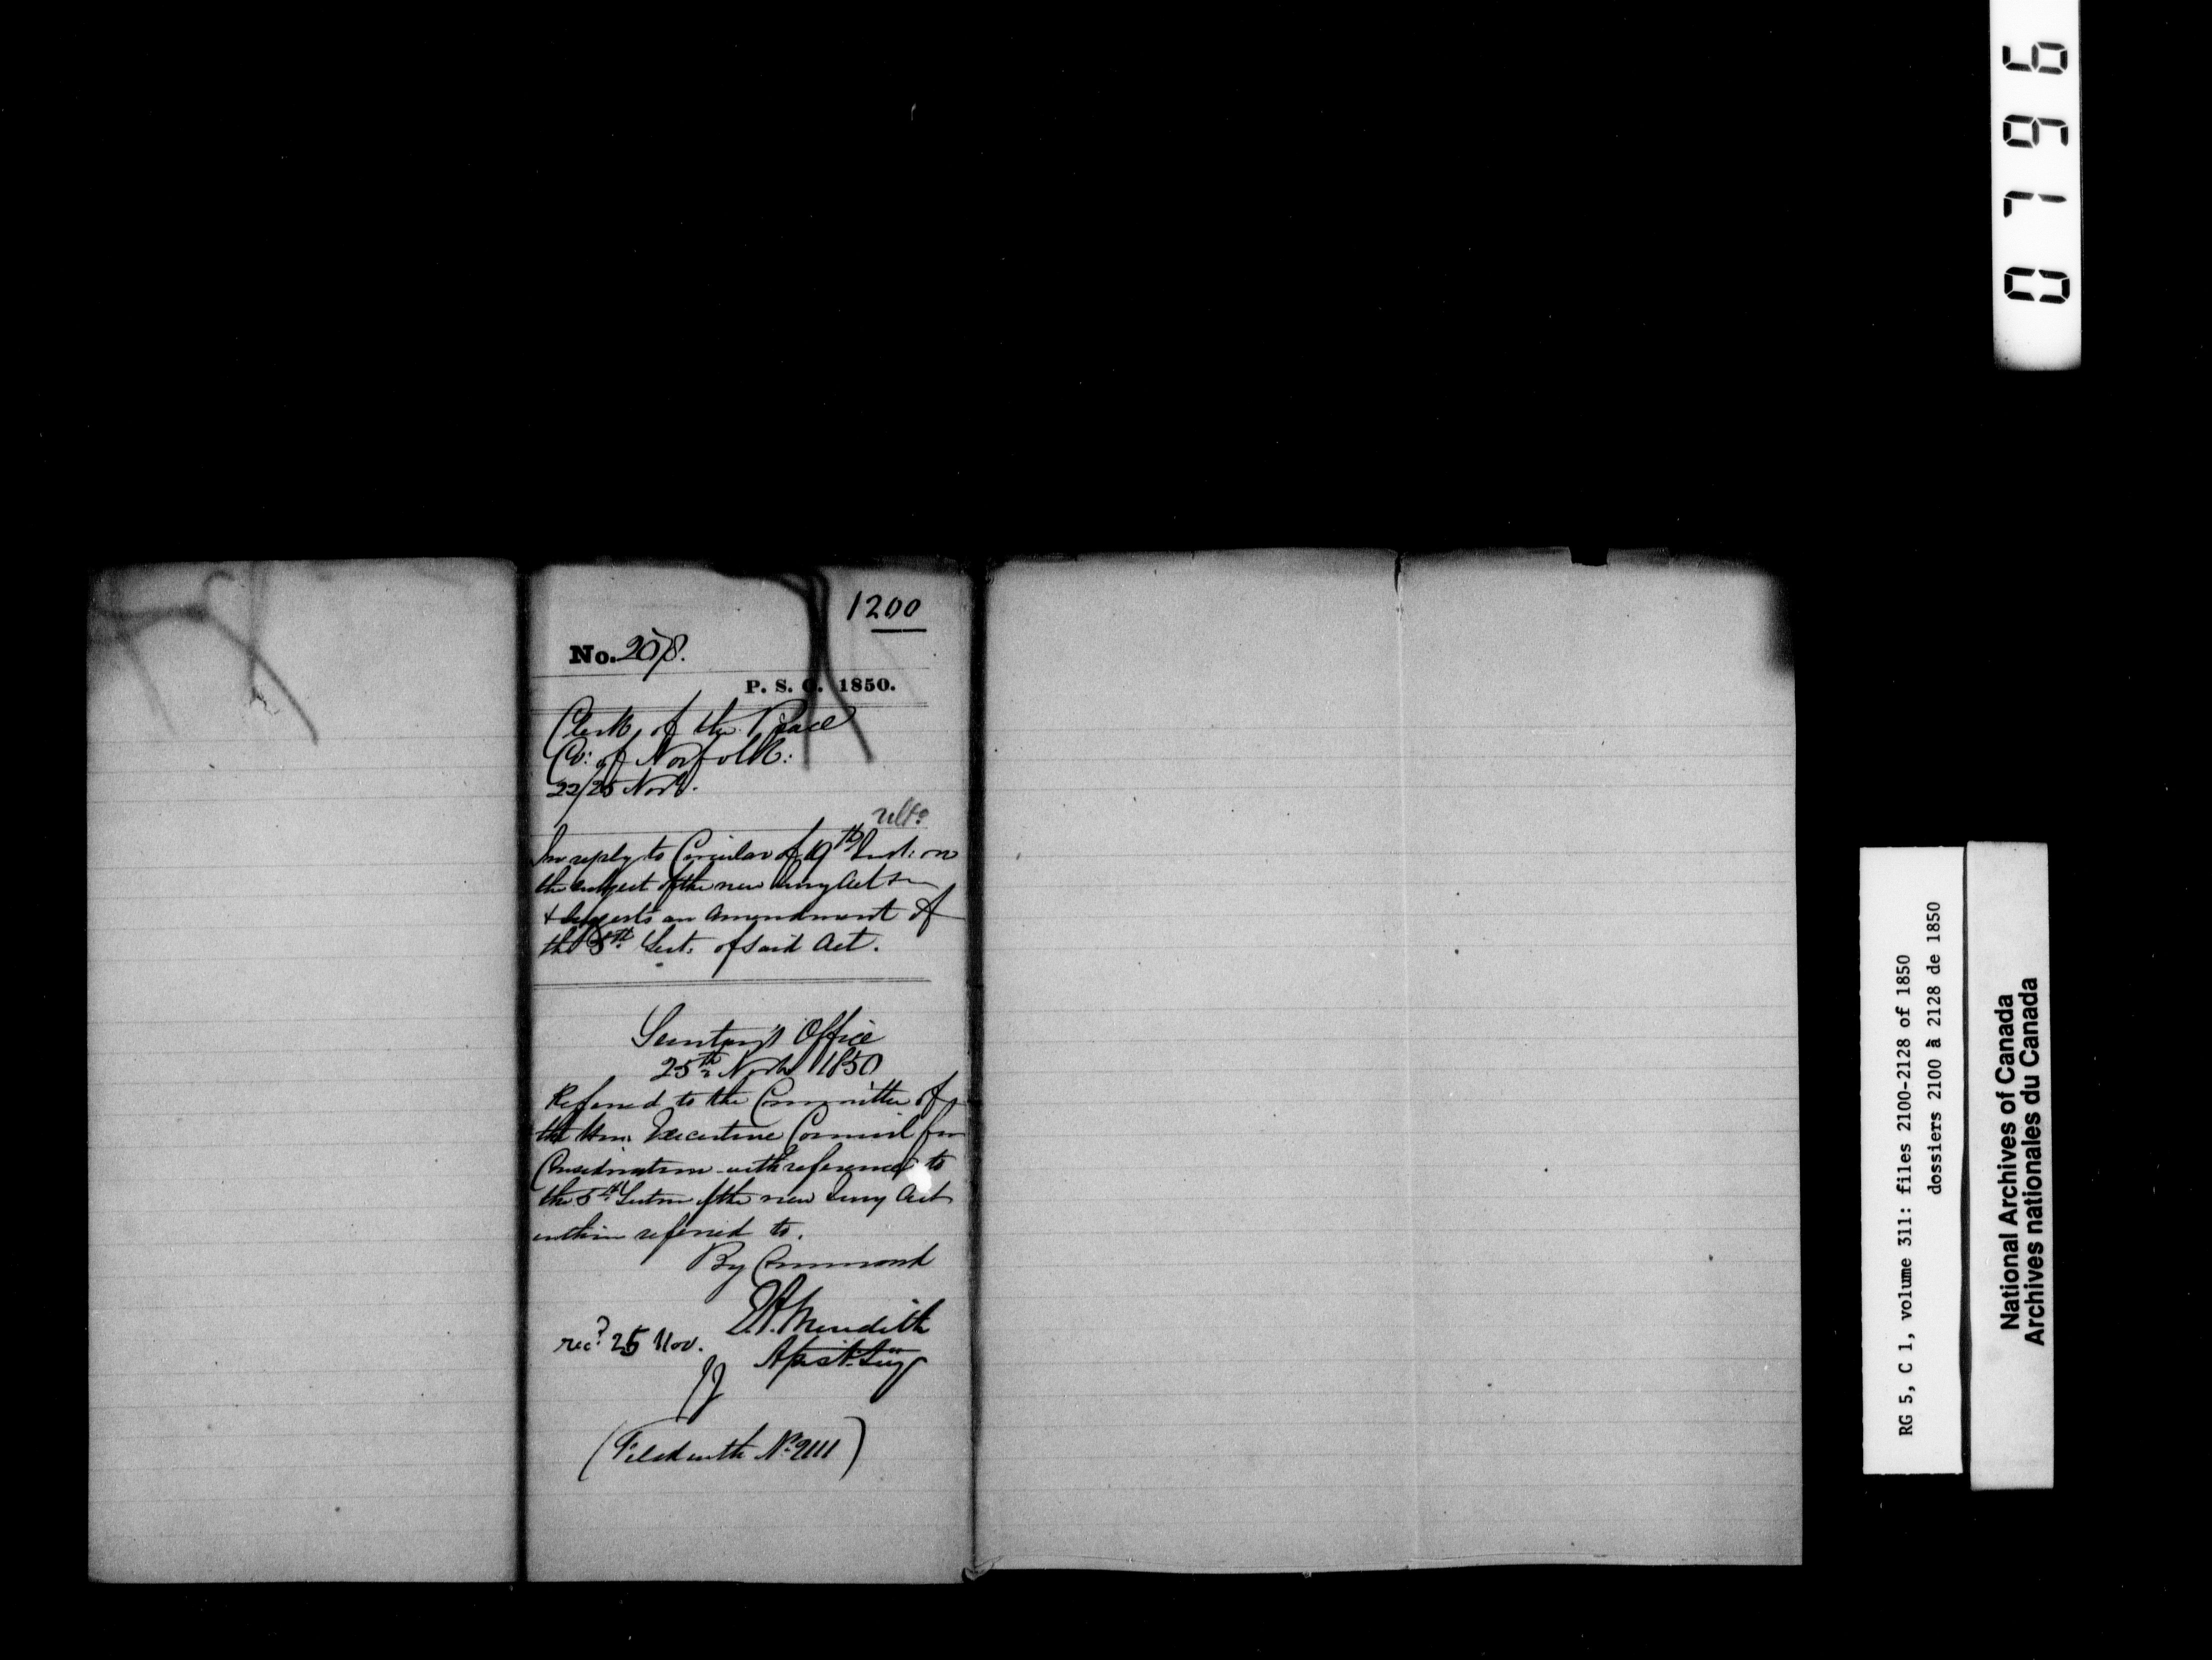 1200
No. 2078.
P. S. O. 1850.
Clerk of the Peace
Co: of Norfolk:
22/25 Novr.
ulto
In reply to Circular of 19th Inst: on
the subject of the new Jury Act
& suggests an amendment of
the 5th Sect: of said Act.
Secretary's Office
25th Novr 1850
Referred to the Committee of
the Hon: Executive Council for
Consideration with reference to
the 5th Section of the new Jury Act
within referred to.
By Command
E.A. Meredith
Asst. Secy
recd 25 Nov.
JJ
(Filed with No 2111)
0796
RG 5, C 1, volume 311: files 2100-2128 of 1850
dossiers 2100 à 2128 de 1850
National Archives of Canada
Archives nationales du Canada